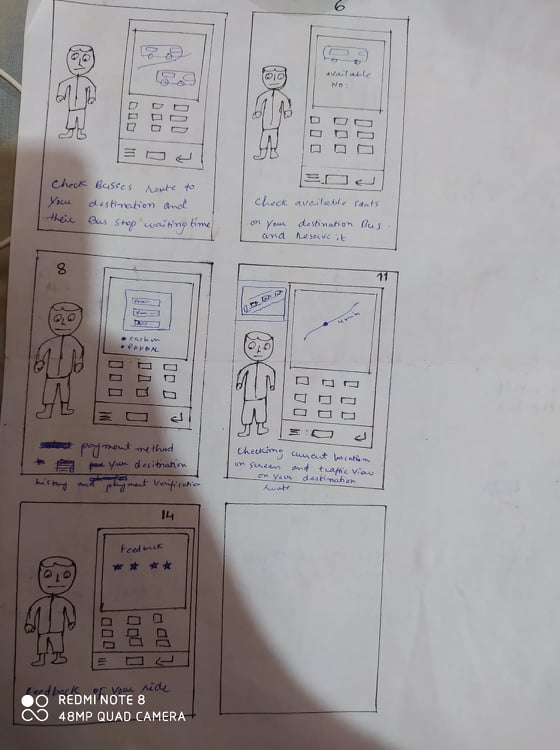 6
available
NO:
Check Busses route to
your destination and
their Bus stop waiting time
Check available seats
on your destination Bus
and Reserve it
8
• PAYPAL
payment method
your destination
history and payment Verification
11
Checking current location
on screen and traffic view
on your destination
route
14
Feedback
Feedback of your ride
REDMI NOTE 8
48MP QUAD CAMERA